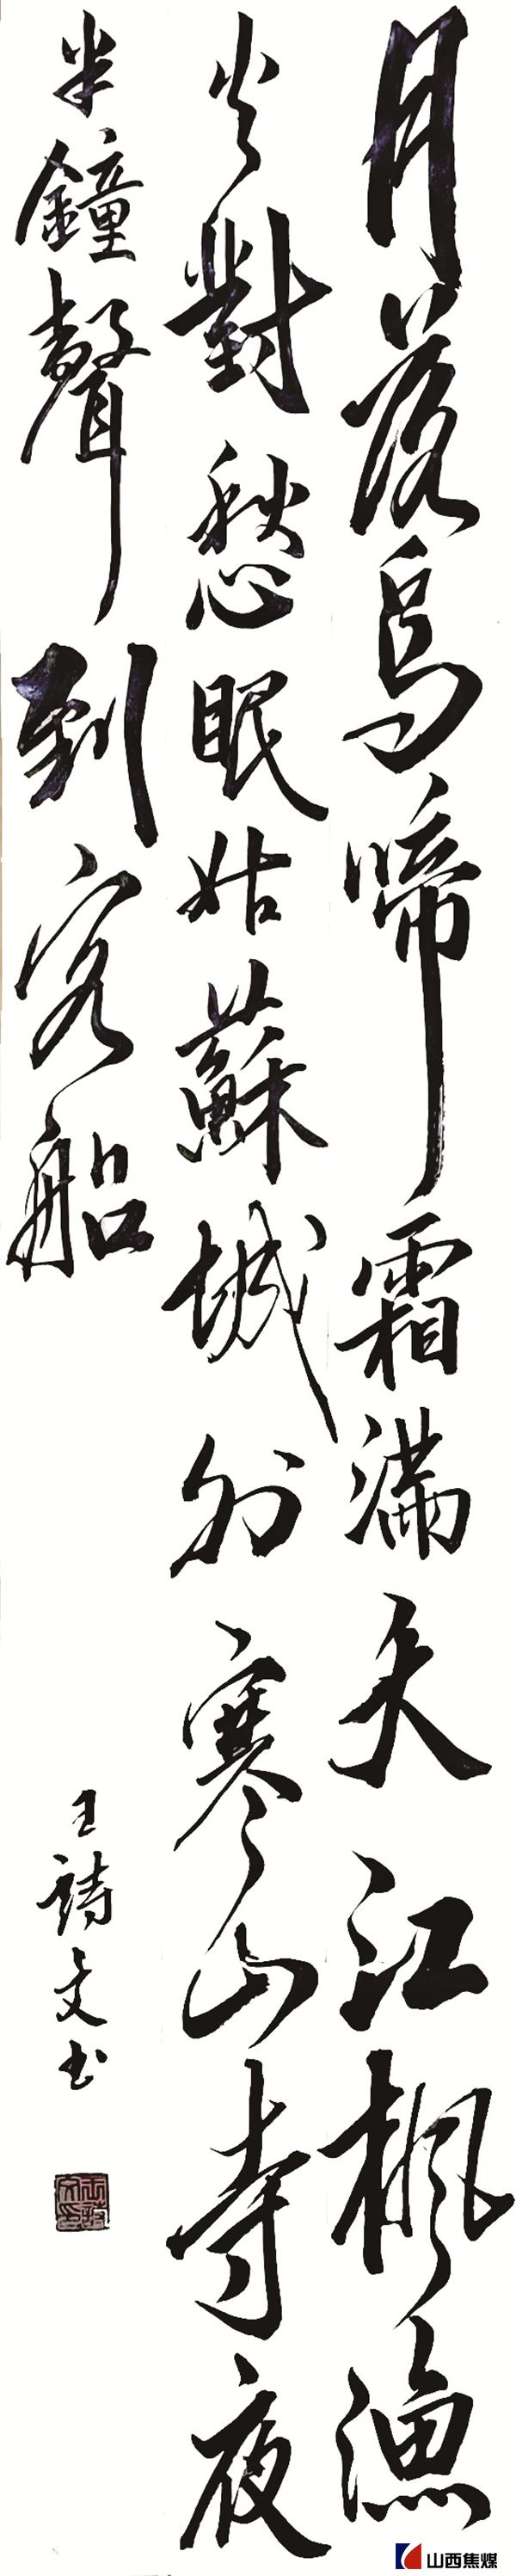 月落烏啼霜滿天江楓漁
火對愁眠姑蘇城外寒山寺夜
半鐘聲到客船
王詩文书
山西焦煤